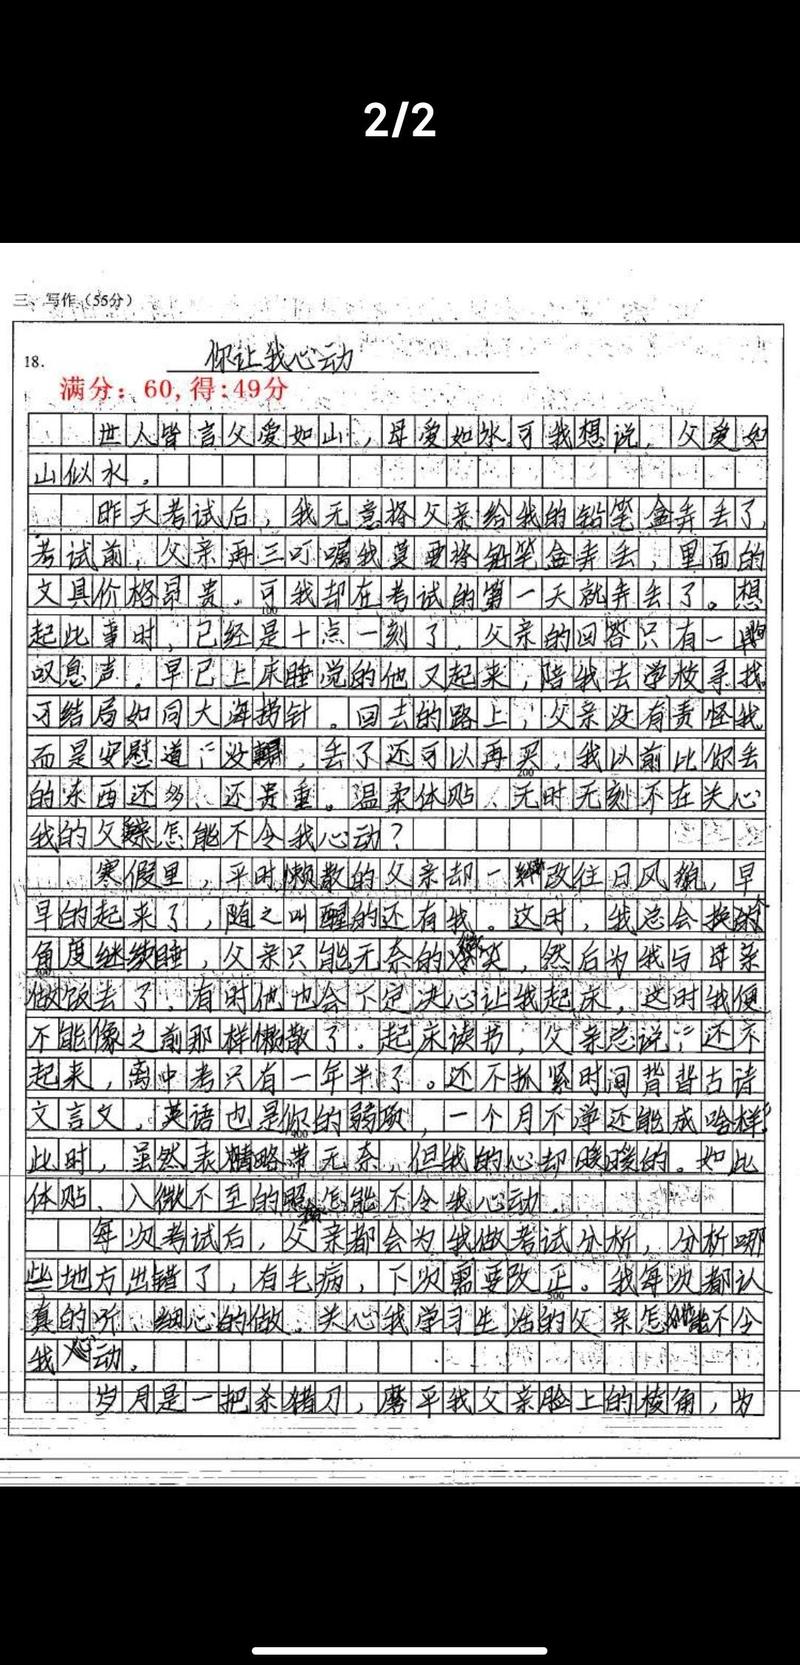 2/2
三、写作（55分）
18. 你让我心动
满分：60,得:49分
世人皆言父爱如山，母爱如水。可我想说，父爱如
山似水。
昨天考试后，我无意将父亲给我的铅笔盒弄丢了，
考试前，父亲再三叮嘱我莫要将铅笔盒弄丢，里面的
文具价格昂贵。可我却在考试的第一天就弄丢了。想
100
起此事时，已经是十点一刻了，父亲的回答只有一
叹息声。早已上床睡觉的他又起来，陪我去学校寻找。
可结局如同大海捞针。回去的路上，父亲没有责怪我
而是安慰道：“没，丢了还可以再买，我以前比你丢
200
的东西还多、还贵重。温柔体贴、无时无刻不在关心
我的父亲怎能不令我心动？
寒假里，平时懒散的父亲却一改往日风貌，早
早的起来了，随之叫醒的还有我。这时，我总会换个
角度继续睡，父亲只能无奈的笑笑，然后为我与母亲
300
做饭去了，有时他也会下定决心让我起床，这时我便
不能像之前那样懒散了。起床读书，父亲总说：“还不
起来，离中考只有一年半了。还不抓紧时间背背古诗
文言文，英语也是你的弱项，一个月不学还能成啥样”
400
此时，虽然表情略带无奈，但我的心却暖暖的。如此
体贴、入微不至的照怎能不令我心动．
每次考试后，父亲都会为我做考试分析，分析哪
些地方出错了，有毛病，下次需要改正。我每次都认
500
真的听、细心的做。关心我学习生活的父亲怎能不令
我心动．
岁月是一把杀猪刀，磨平我父亲脸上的棱角，为